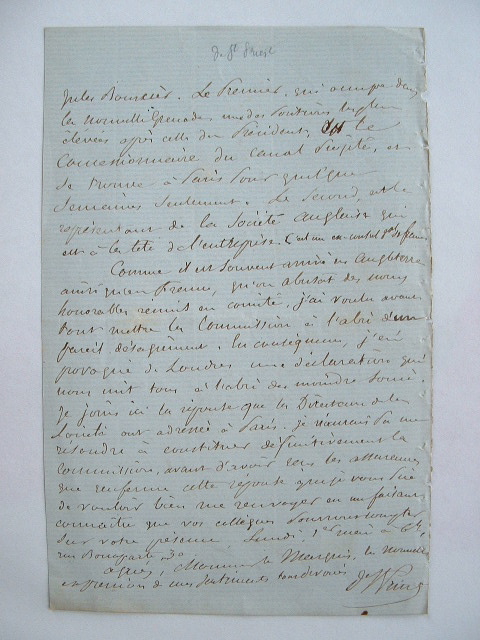 de St Priest
Jules Bourcier. Le Premier, qui occupe dans
la nouvelle Grenade une des positions les plus
élevées après celle du Président, est le
Concessionnaire du canal projeté, et
se trouve à Paris pour quelques
semaines seulement. Le second, est le
représentant de la Société anglaise qui
est à la tête de l'entreprise. (c'est un ex-consul gal de france
Comme il est souvent arrivé en Angleterre
aussi qu'en france, qu'on abusat des noms
honorables réunis en comité, j'ai voulu avant
tout mettre la Commission à l'abri d'un
pareil désagrément. En conséquence, j'ai
provoqué de Londres une déclaration qui
nous mit tous à l'abri du moindre souci.
Je joins ici la réponse que les Directeurs de la
Société ont adressée à Paris. je n'aurais pu me
résoudre à constituer définitivement la
commission, avant d'avoir reçu les assurances
que renferme cette réponse que je vous prie
de vouloir bien me renvoyer en me faisant
connaître que vos collègues pourront compter
sur votre présence Lundi 1er mai à
rue Bonaparte 30
agréez, Monsieur le Marquis, la nouvelle
expression de mes sentiments tout dévoués